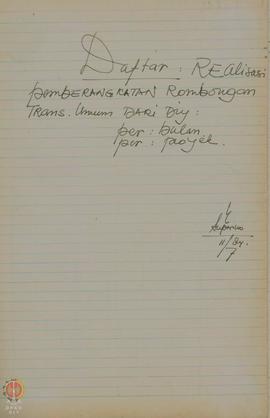 Daftar : REAlisasi
pemBERANGKATAN Rombongan
Trans. Umum DARI DIY :
per : bulan
per : proyek.
11/84.
7